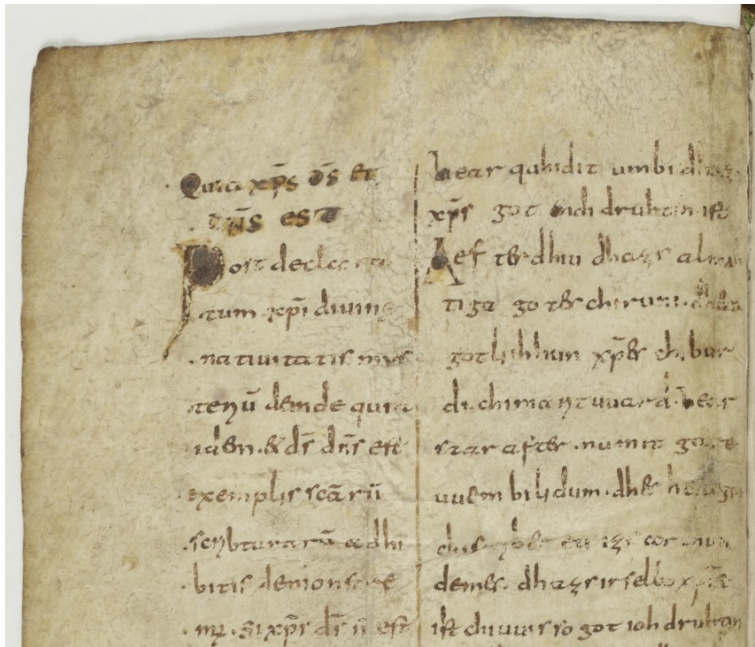 Quia xp̄s d̄s et
dn̄s est
Post declara
tum xp̄i divine
nativitatis mys
teriū deinde quia
idem & d̄s dn̄s est
exemplis sc̄arū
scribturarū adhi
bitis demonstre
mꝰ. si xp̄s d̄s n̄ est
hear quhidit umbi dhazs
xp̄s got endi druhtin ist
Aefter dhiu dhazs almah
tiga gotes chiruni. dhera
gotliihhun xp̄es chibur
di. chimarit uuard. hear
saar after. nu mit gare
uuem bilidum. dhes heilegin
eu izs archun
demes. dhazs ir selbo xp̄ist
ist chiuuisso got ioh druhtin